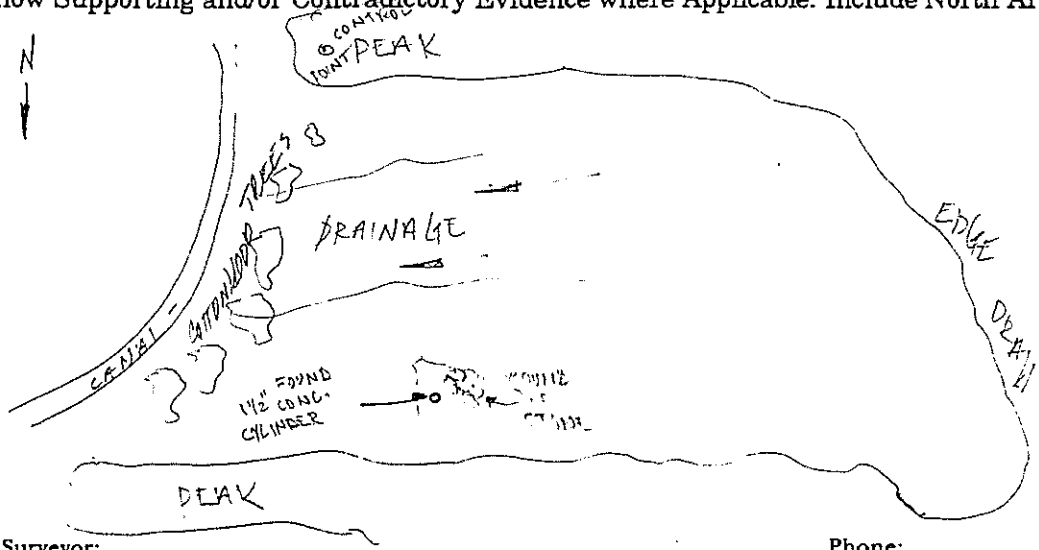 now Supporting and/or Contradictory Evidence where Applicable. Include North Ar
N
CONTROL
POINT
PEAK
COTTONWOOD TREES
DRAINAGE
CANAL
EDGE
FOUND
1 1/2" CONC.
CYLINDER
PEAK
Surveyor:
Phone: